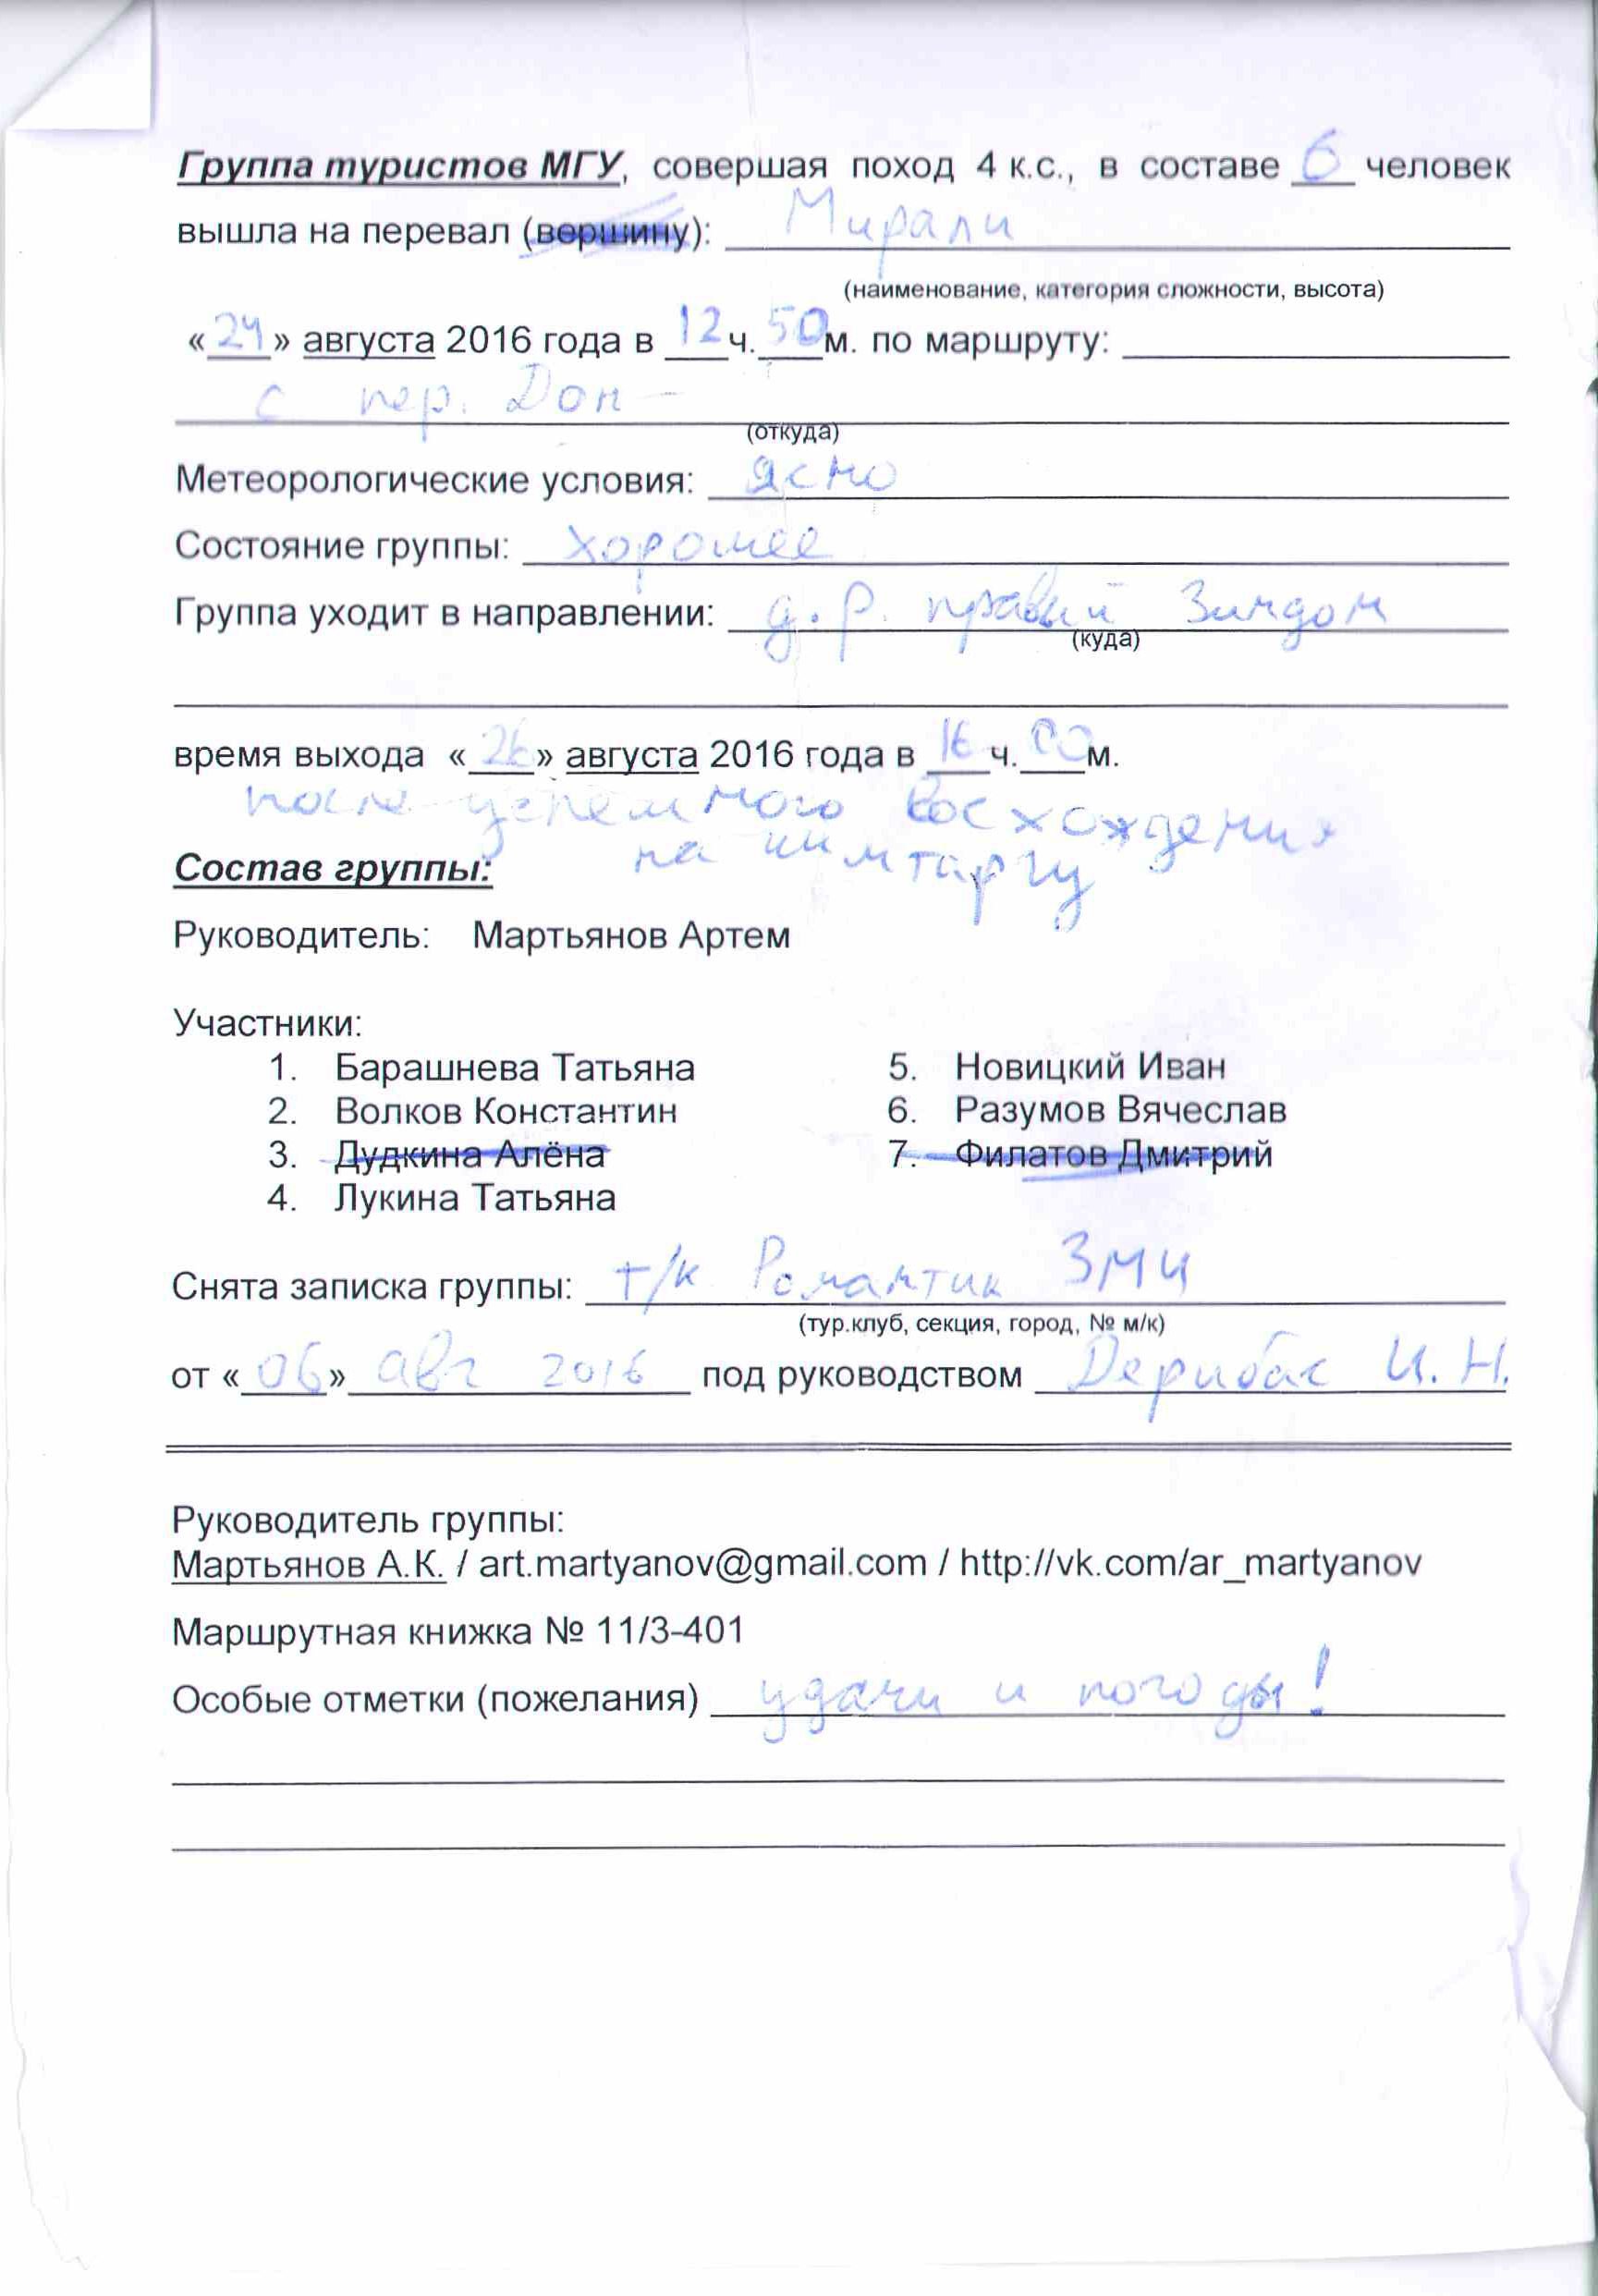 Группа туристов МГУ, совершая поход 4 к.с., в составе 6 человек
вышла на перевал (вершину): Мирали
(наименование, категория сложности, высота)
«24» августа 2016 года в 12 ч. 50 м. по маршруту:
с пер. Дон
(откуда)
Метеорологические условия: ясно
Состояние группы: хорошее
Группа уходит в направлении: д.р. правый Зиндон
(куда)
время выхода «26» августа 2016 года в 16 ч. 00 м.
после успешного восхождения
на чимтаргу
Состав группы:
Руководитель: Мартьянов Артем
Участники:
1. Барашнева Татьяна 5. Новицкий Иван
2. Волков Константин 6. Разумов Вячеслав
3. Дудкина Алёна 7. Филатов Дмитрий
4. Лукина Татьяна
Снята записка группы: т/к Романтик ЗМЧ
(тур.клуб, секция, город, № м/к)
от «06» авг 2016 под руководством Дерибас И.Н.
Руководитель группы:
Мартьянов А.К. / art.martyanov@gmail.com / http://vk.com/ar_martyanov
Маршрутная книжка № 11/3-401
Особые отметки (пожелания) удачи и погоды!